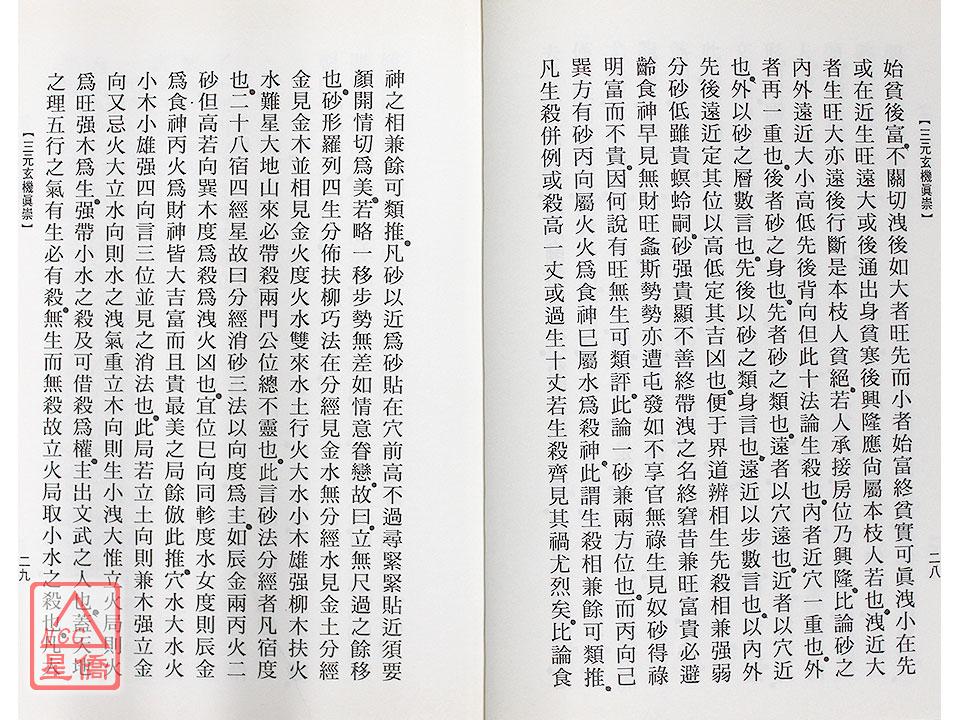 【三元玄機眞崇】
始貧後富。不關切洩後如大者旺先而小者始富終貧實可眞洩小在先
或在近生旺遠大或後通出身貧寒後興隆應尙屬本枝人若也。洩近大
者生旺大亦遠後行斷是本枝人貧絕。若人承接房位乃興隆。比論砂之
內外遠近大小高低先後背向但此十法論生殺也。內者近穴一重也。外
者再一重也。後者砂之身也。先者砂之類也。遠者以穴遠也。近者以穴近
也。外以砂之層數言也。先後以砂之類身言也。遠近以步數言也。以內外
先後遠近定其位以高低定其吉凶也。便于界道辨相生先殺相兼强弱
分砂低雖貴螟蛉嗣。砂强貴顯不善終帶洩之名終窘昔兼旺富貴必避
齡食神早見無財旺螽斯勢勢亦遭屯發如不享官無祿生見奴砂得祿
明富而不貴。因何說有旺無生可類評。此論一砂兼兩方位也。而丙向己
巽方有砂丙向屬火火爲食神巳屬水爲殺神。此謂生殺相兼餘可類推。
凡生殺併例或殺高一丈或過生十丈若生殺齊見其禍尤烈矣。比論食
二八
神之相兼餘可類推。凡砂以近爲砂貼在穴前高不過尋緊緊貼近須要
顏開情切爲美。若略一移步勢無差如情意眷戀。故曰。立無尺過之餘移
也。砂形羅列四生分佈扶柳巧法在分經見金水無分經水見金土分經
金見金木並相見金火度火水雙來水土行火大水小木雄强柳木扶火
水難星大地山來必帶殺兩門公位總不靈也。此言砂法分經者凡宿度
也。二十八宿四經星故曰分經消砂三法以向度爲主。如辰金兩丙火二
砂但高若向巽木度爲殺爲洩火凶也。宜位巳向同軫度水女度則辰金
爲食神丙火爲財神皆大吉富而且貴最美之局餘倣此推。穴水大水火
小木小雄强四向言三位並見之消法也。此局若立土向則兼木强立金
向又忌火大立水向則水之洩氣重立木向則生小洩大惟立火局則火
爲旺强木爲生。强帶小水之殺及可借殺爲權。主出文武之人也。蓋天地
之理五行之氣有生必有殺。無生而無殺故立火局取小水之殺也。
【三元玄機眞崇】
二九
NCC
星僑